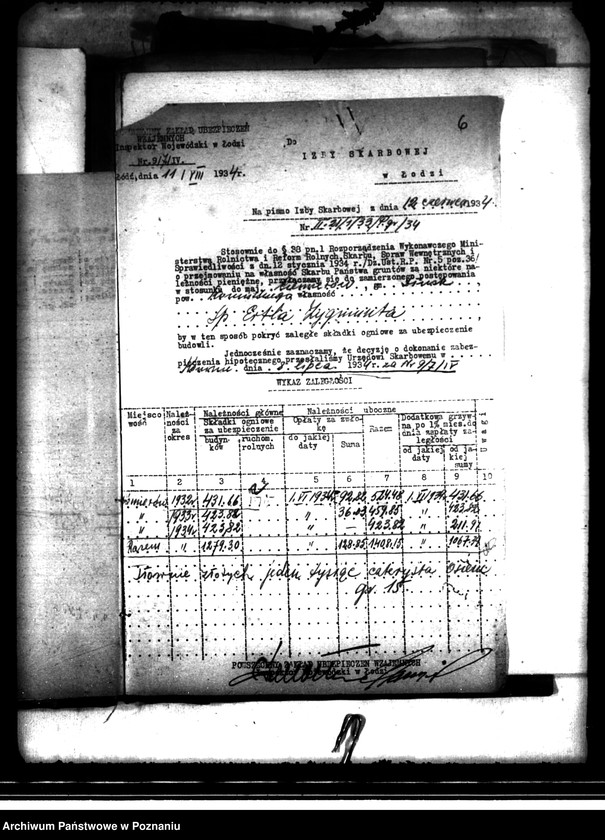 6
POWSZECHNY ZAKŁAD UBEZPIECZEŃ
WZAJEMNYCH
Inspektor Wojewódzki w Łodzi
Nr. 9/7/IV.
Łódź, dnia 11 / VIII 1934r.
Do
IZBY SKARBOWEJ
w Łodzi
Na pismo Izby Skarbowej z dnia 12 czerwca 1934.
Stosownie do § 38 pn.1 Rozporządzenia Wykonawczego Mini-
sterstwa Rolnictwa i Reform Rolnych, Skarbu, Spraw Wewnętrznych i
Sprawiedliwości z dn.12 stycznia 1934 r./Dz.Ust.R.P. Nr.5 poz.36/
o przejmowaniu na własność Skarbu Państwa gruntów za niektóre na-
leżności pieniężne, przyłączamy się do zamierzonego postępowania
w stosunku do maj. gm.
pow. własność
Sp. Ertla Zygmunta
by w ten sposób pokryć zaległe składki ogniowe za ubezpieczenie
budowli.
Jednocześnie zaznaczamy, że decyzję o dokonanie zabez-
pieczenia hipotecznego przesłaliśmy Urzędowi Skarbowemu w
dnia 5 lipca 1934r. za Nr 9/7/IV
WYKAZ ZALEGŁOŚCI
Miejsco wość Należ- ności za okres Należności główne Składki ogniowe za ubezpieczenie budyn- ków ruchom. rolnych Należności uboczne Opłaty za zwło- kę do jakiej daty Suma Razem Dodatkowa grzyw- na po 1% mies.do dnia zapłaty za- ległości od jakiej daty od ja- kiej sumy
1 2 3 5 6 7 8 9 10
1932r. 431.66 1.VI 1934r. 92.82 524.48 1.VI 1934. 431.66
" 1933r. 423.82 " 36.03 459.85 " 423.82
" 1934r. 423.82 " — 423.82 " 211.91
Razem " 1279.30 " 128.85 1408.15 "
Słownie złotych jeden tysiąc czterysta osiem
gr. 15.
POWSZECHNY ZAKŁAD UBEZPIECZEŃ WZAJEMNYCH
Inspektor Wojewódzki w Łodzi
Archiwum Państwowe w Poznaniu